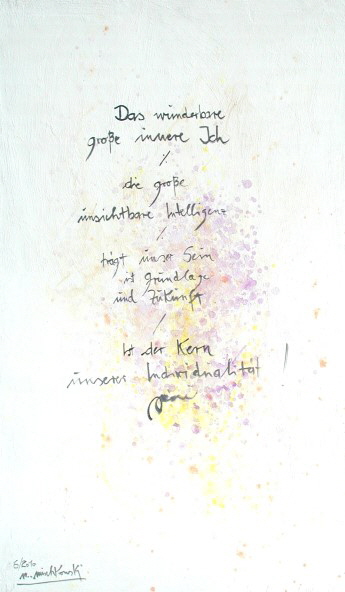 Das wunderbare
große innere Ich
/
die große
unsichtbare Intelligenz
/
trägt unser Sein
ist Grundlage
und Zukunft
/
Ist der Kern
unserer Individualität!